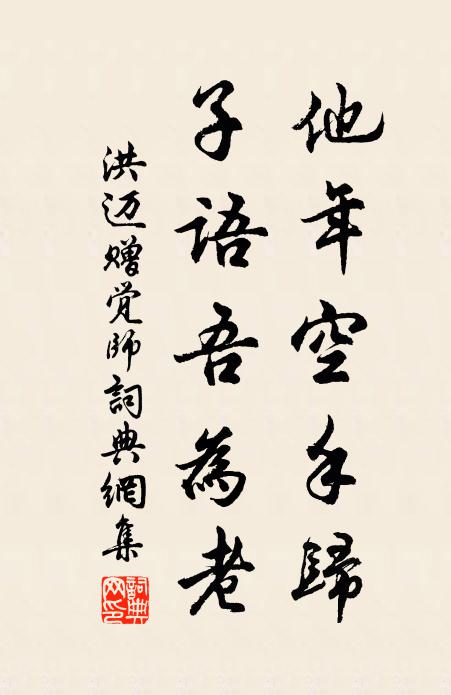 他年空手歸
子語吾為老
洪迈赠觉师詞典網集
詞典网印